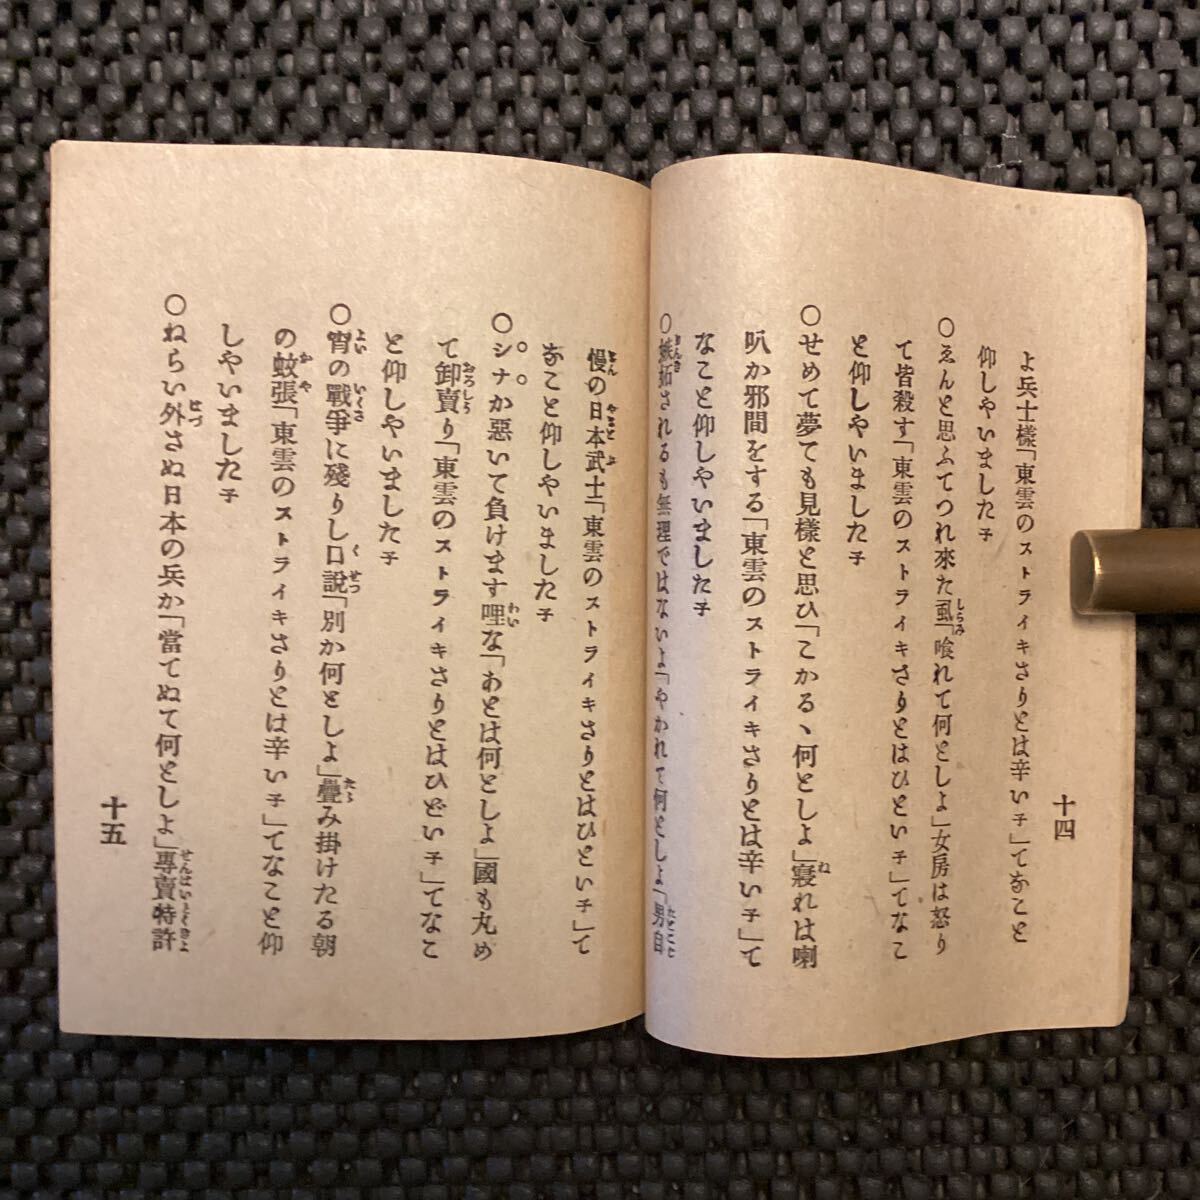 十四
よ兵士樣「東雲のストライキさりとは辛い子」てなこと
仰しやいました子
○ゑんと思ふてつれ來た虱「喰れて何としよ」女房は怒り
て皆殺す「東雲のストライキさりとはひとい子」てなこ
と仰しやいました子
○せめて夢ても見樣と思ひ「こかるヽ何としよ」寢れは喇
叭か邪間をする「東雲のストライキさりとは辛い子」て
なこと仰しやいました子
○嫉拓されるも無理ではないよ「やかれて何としよ「男自
慢の日本武士「東雲のストライキさりとはひとい子」て
なこと仰しやいました子
○シナか惡いて負けます哩な「あとは何としよ」國も丸め
て卸賣り「東雲のストライキさりとはひどい子」てなこ
と仰しやいました子
○宵の戰爭に殘りし口說「別か何としよ」疊み掛けたる朝
の蚊張「東雲のストライキさりとは辛い子」てなこと仰
しやいました子
○ねらい外さぬ日本の兵か「當てぬて何としよ」專賣特許
十五